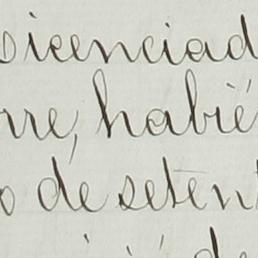 icenciad
rre, habié
o de setent